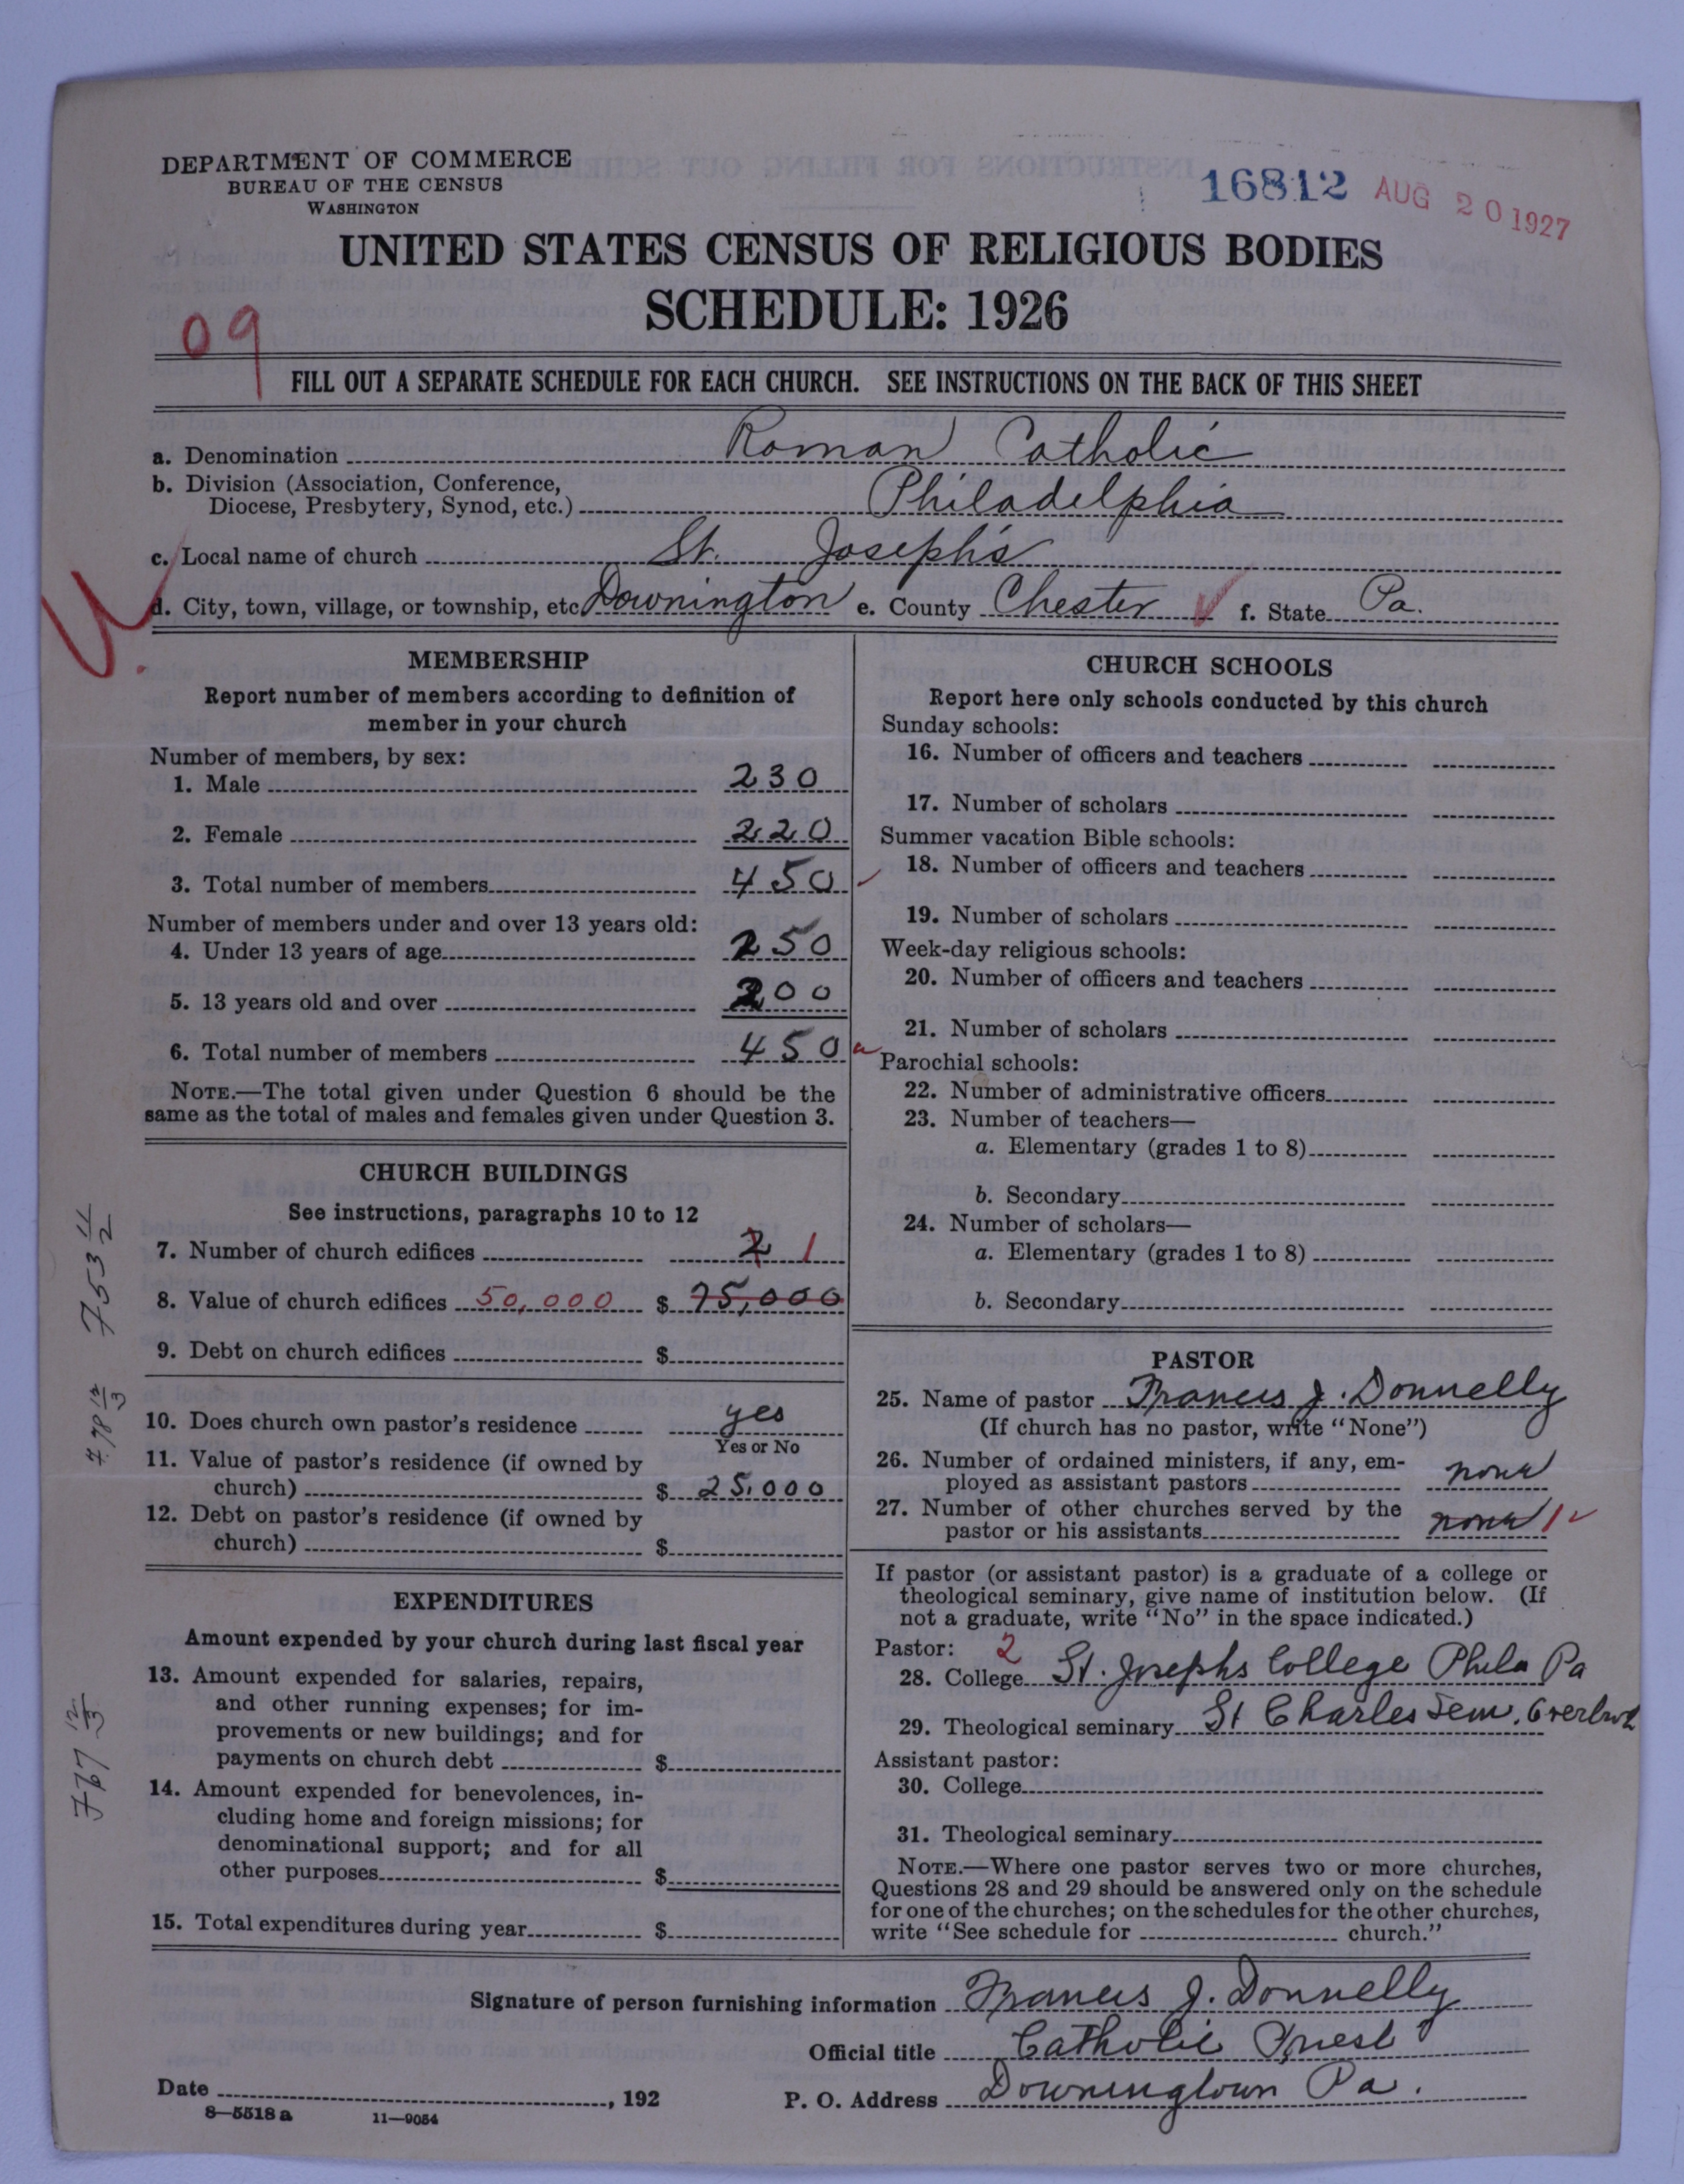 DEPARTMENT OF COMMERCE
BUREAU OF THE CENSUS
WASHINGTON
16812 AUG 20 1927
UNITED STATES CENSUS OF RELIGIOUS BODIES
SCHEDULE: 1926
09
FILL OUT A SEPARATE SCHEDULE FOR EACH CHURCH. SEE INSTRUCTIONS ON THE BACK OF THIS SHEET
a. Denomination Roman Catholic
b. Division (Association, Conference,
Diocese, Presbytery, Synod, etc.) Philadelphia
c. Local name of church St. Joseph's
d. City, town, village, or township, etc Downington e. County Chester f. State Pa.
MEMBERSHIP
Report number of members according to definition of
member in your church
Number of members, by sex:
1. Male 230
2. Female 220
3. Total number of members 450
Number of members under and over 13 years old:
4. Under 13 years of age 250
5. 13 years old and over 200
6. Total number of members 450
NOTE.—The total given under Question 6 should be the
same as the total of males and females given under Question 3.
CHURCH BUILDINGS
See instructions, paragraphs 10 to 12
7. Number of church edifices 2 1
8. Value of church edifices 50,000 $ 75,000
9. Debt on church edifices $
10. Does church own pastor's residence yes
Yes or No
11. Value of pastor's residence (if owned by
church) $ 25,000
12. Debt on pastor's residence (if owned by
church) $
EXPENDITURES
Amount expended by your church during last fiscal year
13. Amount expended for salaries, repairs,
and other running expenses; for im-
provements or new buildings; and for
payments on church debt $
14. Amount expended for benevolences, in-
cluding home and foreign missions; for
denominational support; and for all
other purposes $
15. Total expenditures during year $
CHURCH SCHOOLS
Report here only schools conducted by this church
Sunday schools:
16. Number of officers and teachers
17. Number of scholars
Summer vacation Bible schools:
18. Number of officers and teachers
19. Number of scholars
Week-day religious schools:
20. Number of officers and teachers
21. Number of scholars
Parochial schools:
22. Number of administrative officers
23. Number of teachers—
a. Elementary (grades 1 to 8)
b. Secondary
24. Number of scholars—
a. Elementary (grades 1 to 8)
b. Secondary
PASTOR
25. Name of pastor Francis J. Donnelly
(If church has no pastor, write "None")
26. Number of ordained ministers, if any, em-
ployed as assistant pastors none
27. Number of other churches served by the
pastor or his assistants none 1
If pastor (or assistant pastor) is a graduate of a college or
theological seminary, give name of institution below. (If
not a graduate, write "No" in the space indicated.)
Pastor: 2
28. College St. Josephs College Phila Pa
29. Theological seminary St Charles Sem. Overbrook
Assistant pastor:
30. College
31. Theological seminary
NOTE.—Where one pastor serves two or more churches,
Questions 28 and 29 should be answered only on the schedule
for one of the churches; on the schedules for the other churches,
write "See schedule for church."
Signature of person furnishing information Francis J. Donnelly
Official title Catholic Priest
Date , 192 P. O. Address Downingtown Pa.
8—5518 a 11—9054
753 11/2
778 12/3
767 12/3